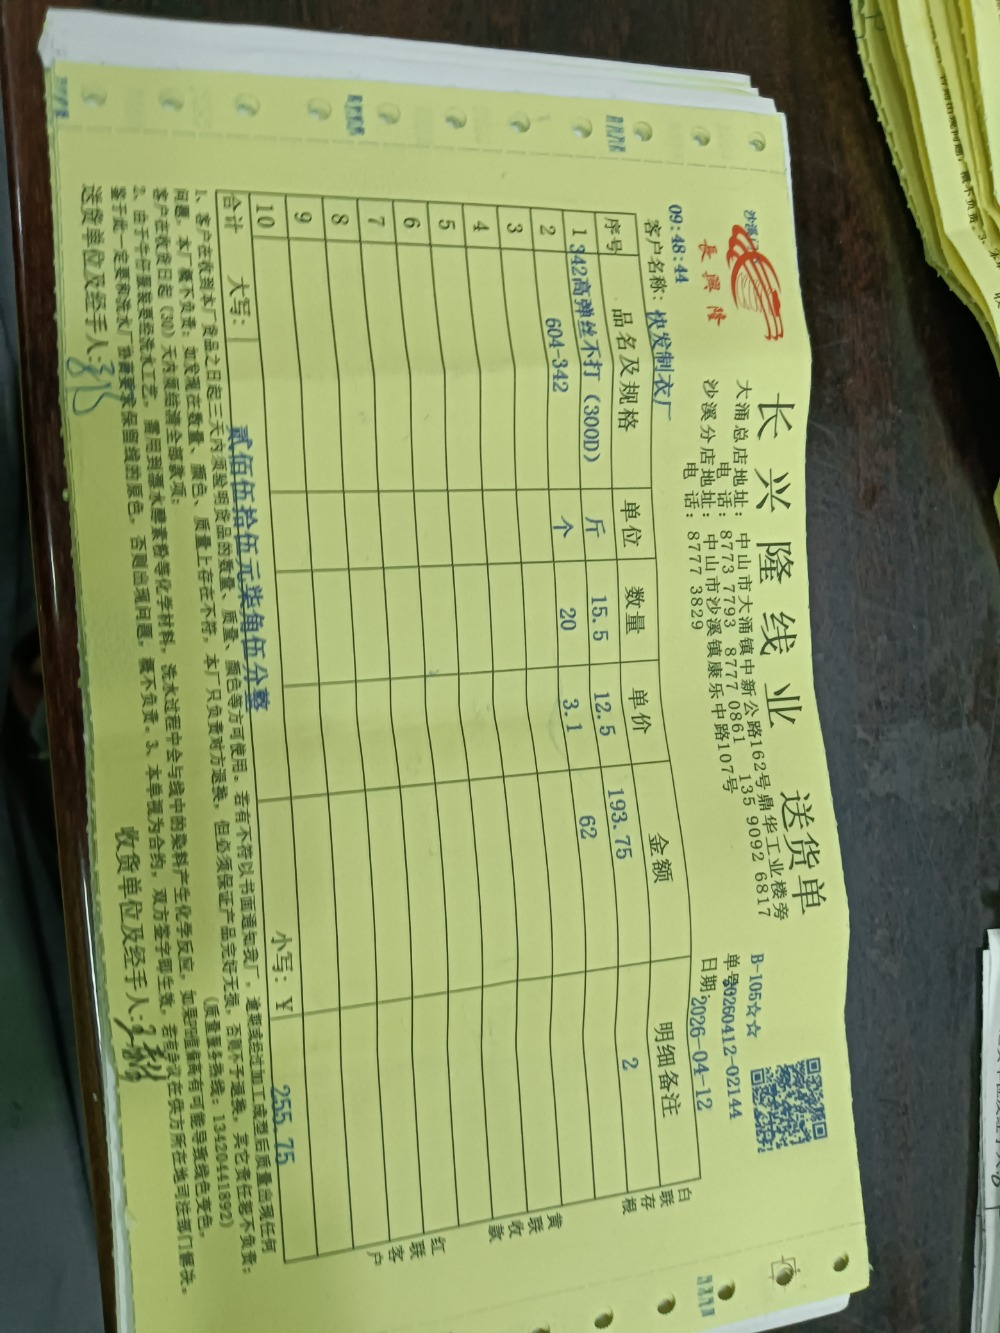 沙溪
長興隆
长兴隆线业 送货单
大涌总店地址：中山市大涌镇中新公路162号鼎华工业楼旁
电话：8773 7793 8777 0861 135 9092 6817
沙溪分店地址：中山市沙溪镇康乐中路107号
电话：8777 3829
B-105☆☆
单号20260412-02144
日期：2026-04-12
09:48:44
客户名称：快发制衣厂
序号 品名及规格 单位 数量 单价 金额 明细备注
1 342高弹丝不打（300D） 斤 15.5 12.5 193.75 2
2 604-342 个 20 3.1 62
3
4
5
6
7
8
9
10
合计 大写： 贰佰伍拾伍元柒角伍分整 小写：￥ 255.75
1、客户在收到本厂货品之日起三天内须验明货品的数量、质量、颜色等方可使用。若有不符以书面通知我厂，逾期或经过加工成型后质量出现任何
问题，本厂概不负责；如发现在数量、颜色、质量上存在不符，本厂只负责对方退换，但必须保证产品完好无损，否则不予退换，其它责任恕不负责；
客户在收货日起（30）天内须结清全部款项； （质量服务热线：13420441892）
2、由于牛仔服装要经洗水工艺，需用到漂水酵素粉等化学材料，洗水过程中会与线中的染料产生化学反应，如果PH值偏高有可能导致线色变色，
鉴于此一定要和洗水厂协商要求保留线的原色，否则出现问题，概不负责。3、本单视为合约，双方签字即生效，若有争议在供方所在地司法部门解决。
送货单位及经手人：
收货单位及经手人：
白联存根
黄联收款
红联客户